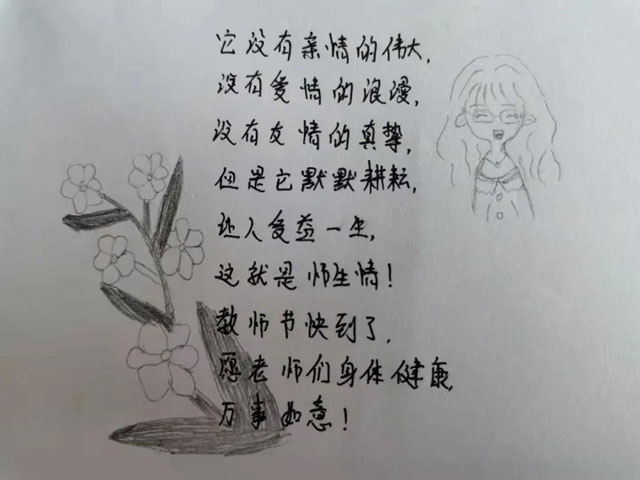 它没有亲情的伟大，
没有爱情的浪漫，
没有友情的真挚，
但是它默默耕耘，
让人受益一生，
这就是师生情！
教师节快到了，
愿老师们身体健康，
万事如意！